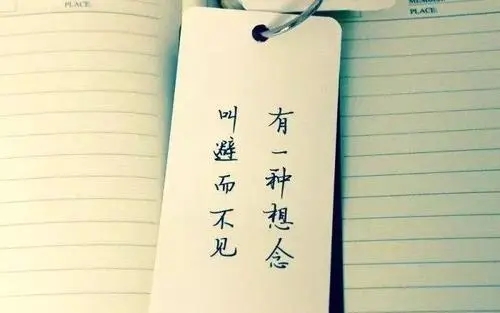 有一种想念
叫避而不见
PLACE:
PLACE: